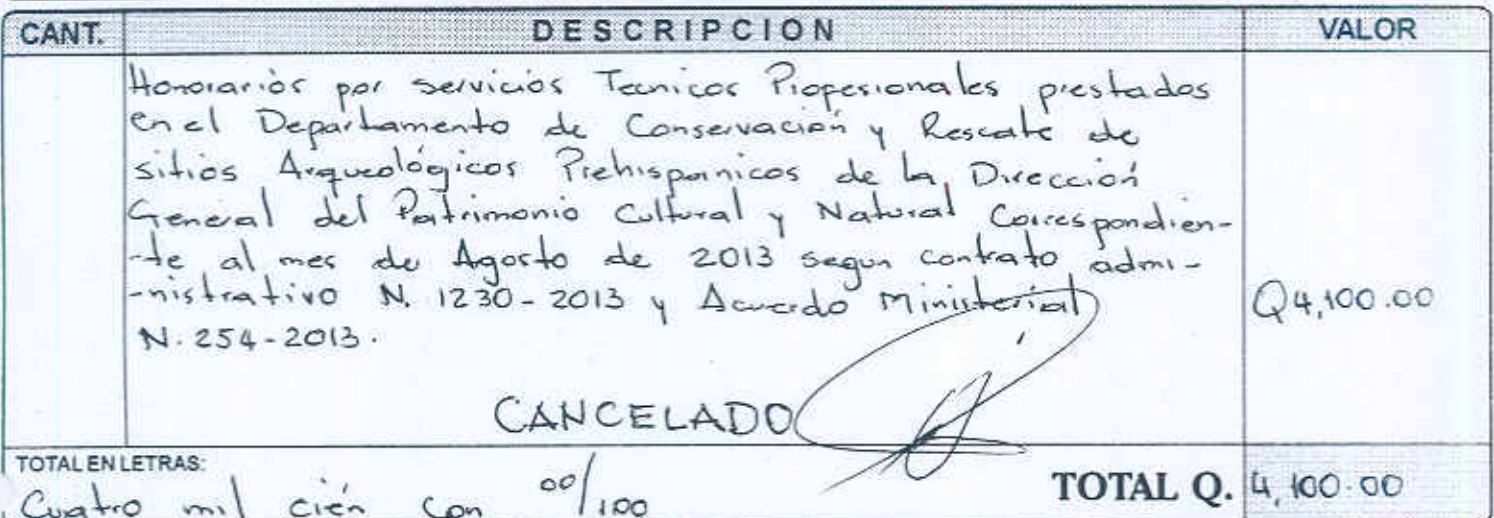 CANT. DESCRIPCION VALOR
Honorariós por servicios Tecnicos Profesionales prestados
en el Departamento de Conservación y Rescate de
sitios Arqueológicos Prehispanicos de la Dirección
General del Patrimonio Cultural y Natural Correspondien-
-te al mes de Agosto de 2013 segun contrato admi-
-nistrativo N. 1230-2013 y Acuerdo Ministerial Q4,100.00
N. 254-2013.
CANCELADO
TOTAL EN LETRAS:
Cuatro mil cién con 00/100 TOTAL Q. 4,100.00